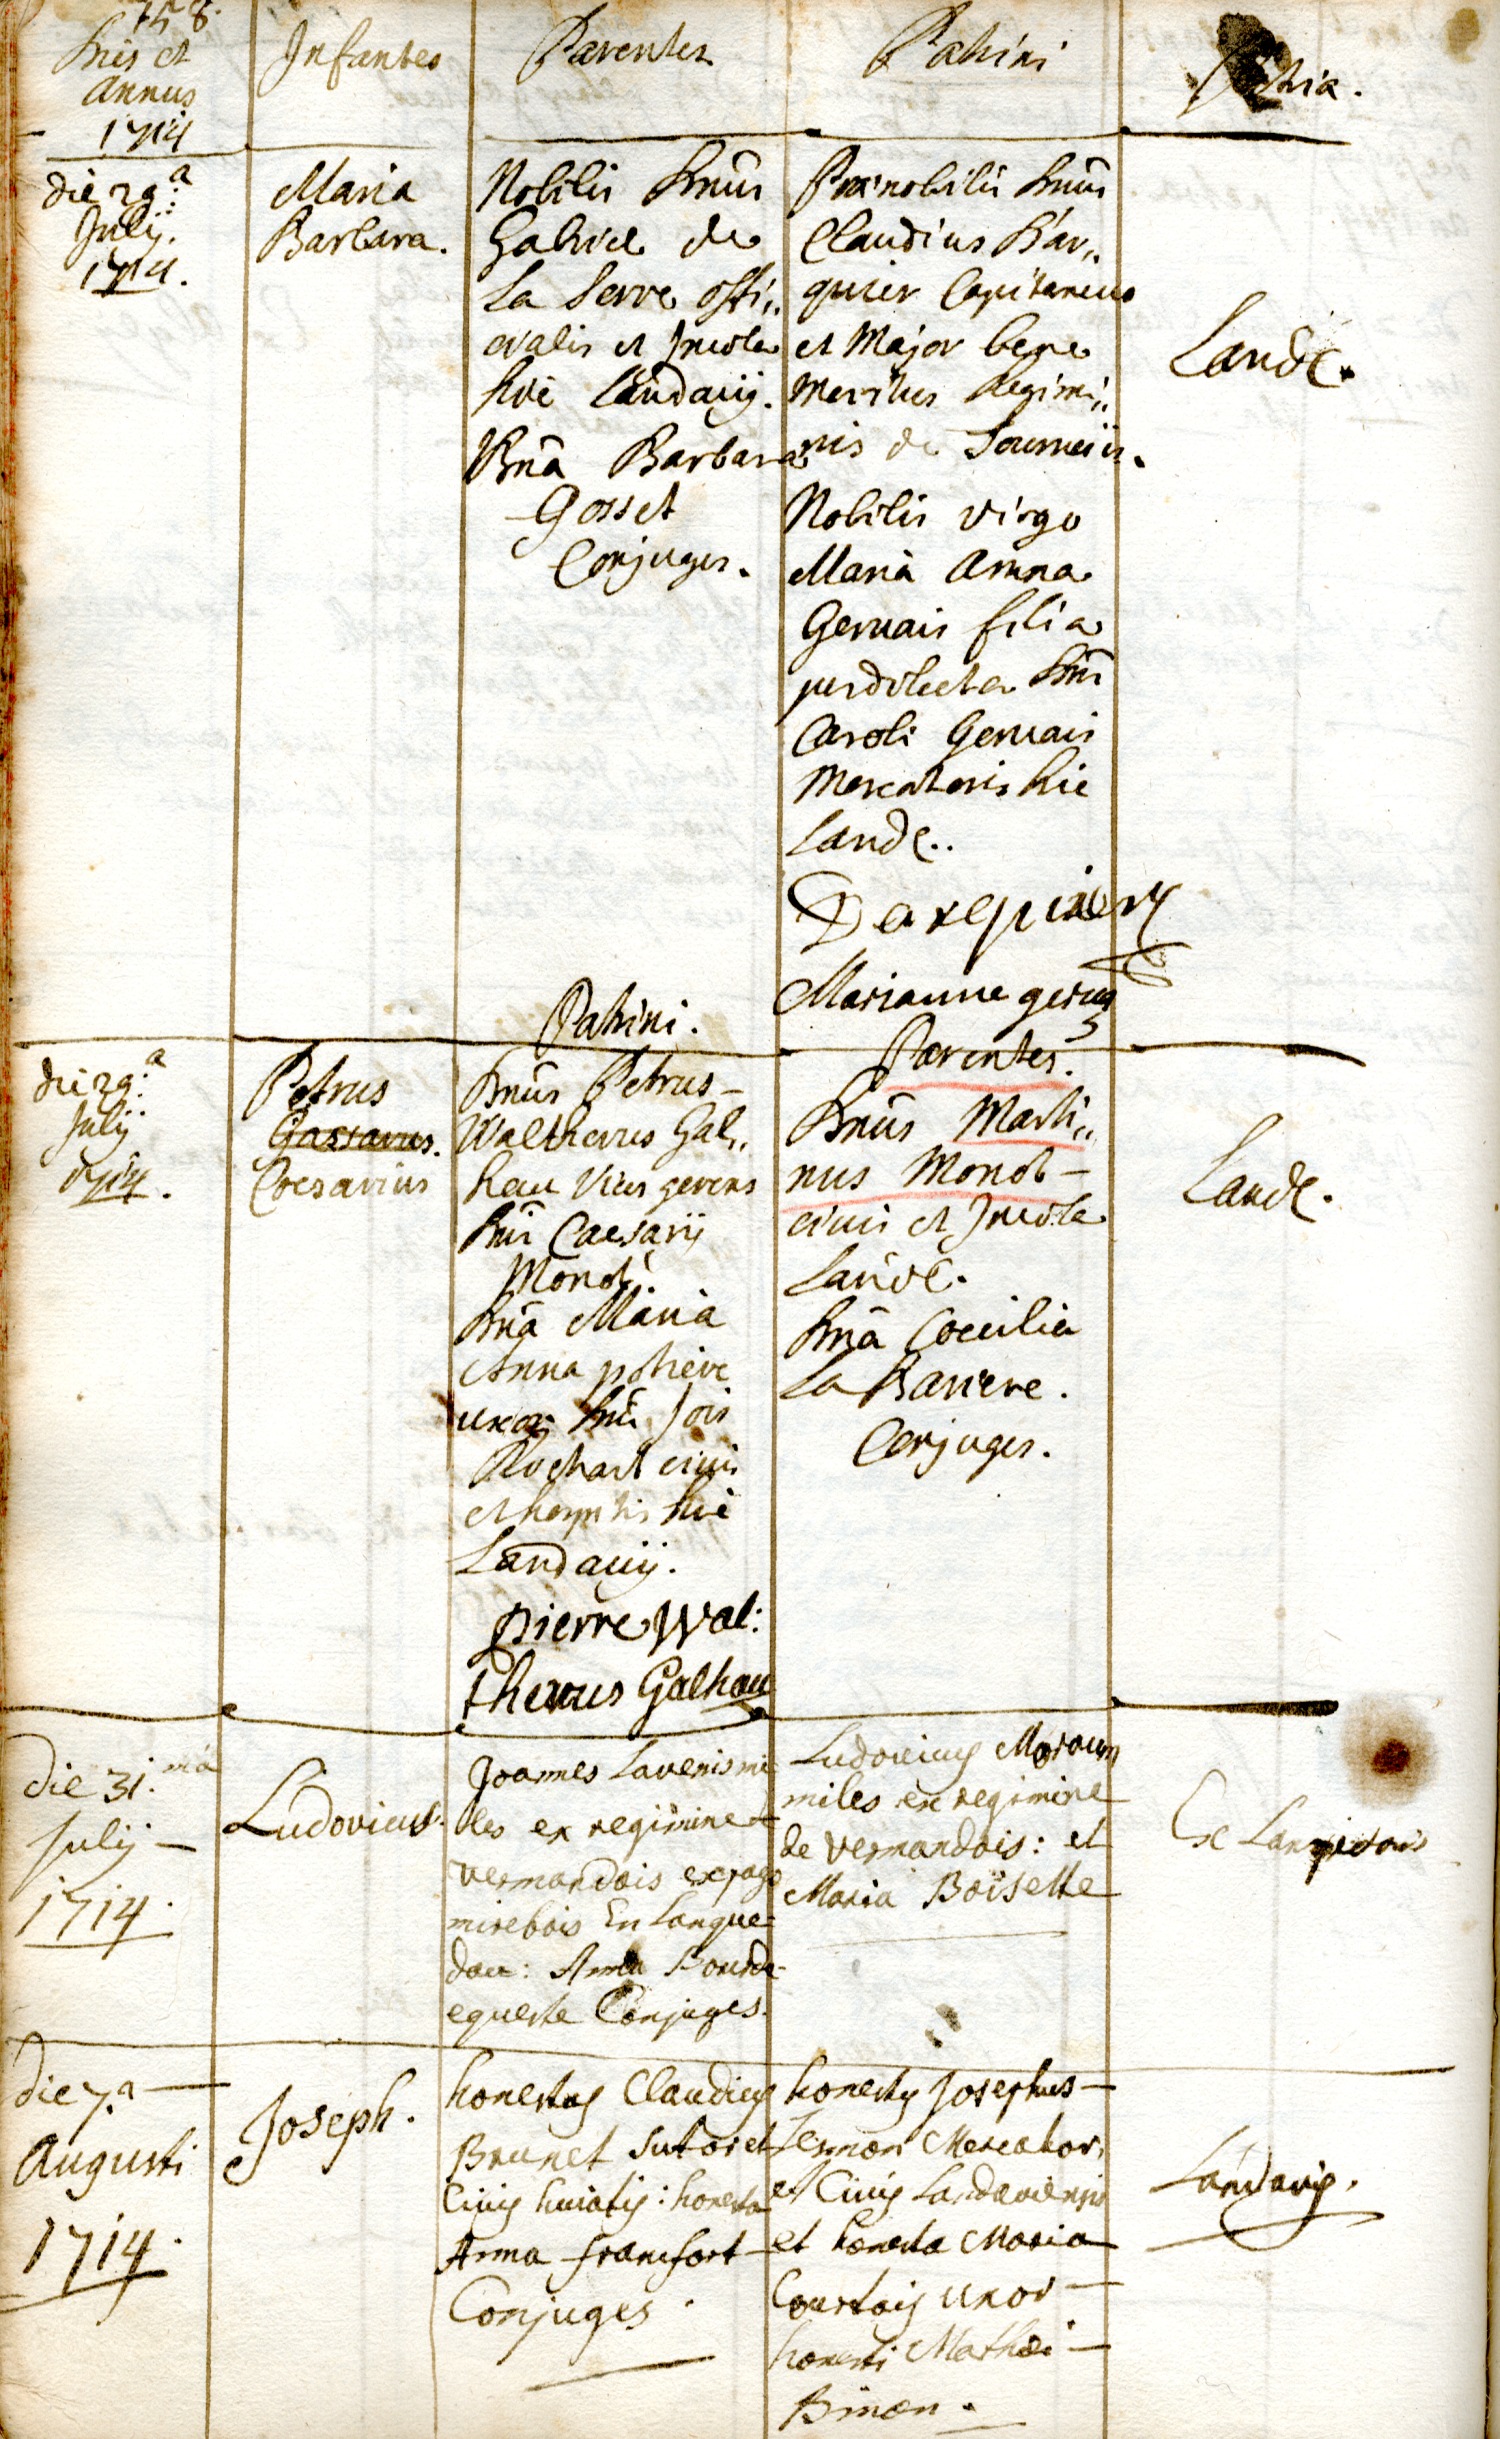 158.
Annus
1714
Infantes
Parentes
Patrini
die 29.a
July.
1714.
Maria
Barbara.
Nobilis Dnus
Gabriel de
La Serre offi„
cialis et Incola
hic Landavij.
Dna Barbara
Gosset
Conjuges.
Praenobilis Dnus
Claudius Dar„
quier Capitaneus
et Major bene
Meritus Regimi„
nis de
Nobilis virgo
Maria Anna
Gervais filia
perdilecta Dni
Caroli Gervais
Mercatoris hic
Landc..
Marianne
Landc.
die 29.a
July
1714.
Petrus
Caesarius
Patrini.
Dnus Petrus
Waltherus Gal„
hau Vices gerens
Dni Caesarij
Monot.
Dna Maria
Anna
uxor Dni Jois
Rochart civis
et hospitis hic
Landavij.
pierre Wal:
therus Galhau
Parentes.
Dnus Marti„
nus Monot
civis et Incola
Landc.
Dna Coecilia
La Bariere.
Conjuges.
Landc.
die 31.ma
July
1714.
Ludovicus.
Joannes Lavenis mi
les ex regimine
vermandois ex pago
mirebois En Langue=
doc: Anna
equeste Conjuges.
Ludovicus
miles ex regimine
de vermandois: et
Maria Boïselle
Ex
die 7.a
Augusti
1714.
Joseph.
honestus Claudius
Brunet Sutor et
Civis huiatis: honesta
Anna francfort
Conjuges.
honestus Josephus
Mercator
et Civis Landaviensis
et honesta Maria
Courtois uxor
honesti Mathaei
Landavij.